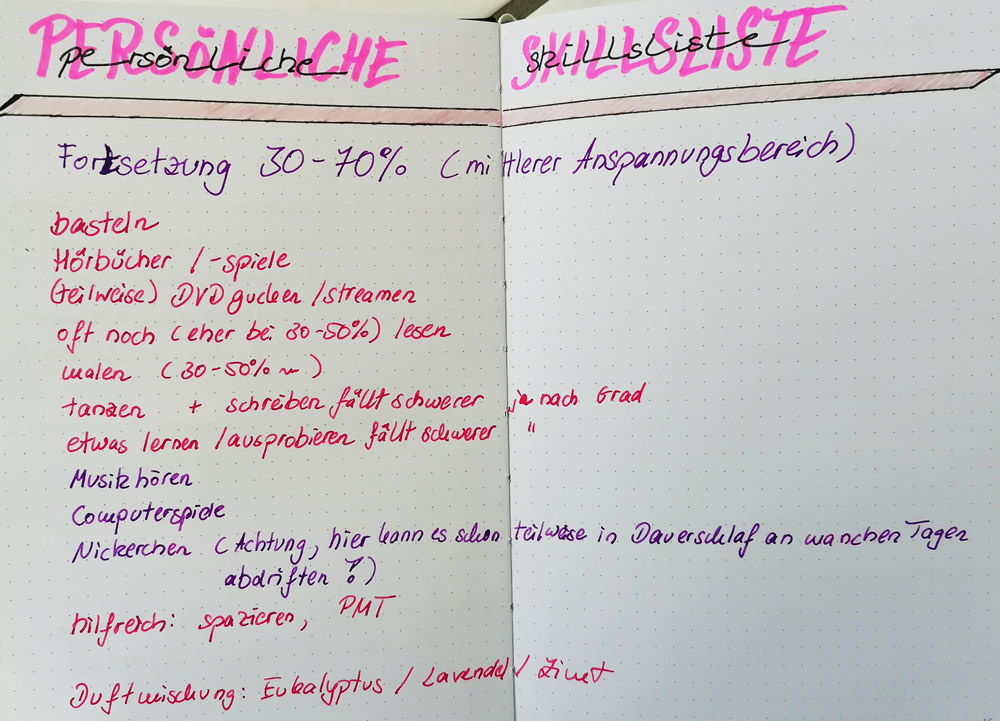 PERSÖNLICHE SKILLSLISTE
persönliche skillsliste
Fortsetzung 30-70% (mittlerer Anspannungsbereich)
basteln
Hörbücher /-spiele
(teilweise) DVD gucken /streamen
oft noch (eher bei 30-50%) lesen
malen (30-50% ~)
tanzen + schreiben fällt schwerer je nach Grad
etwas lernen /ausprobieren fällt schwerer "
Musik hören
Computerspiele
Nickerchen (Achtung, hier kann es schon teilweise in Dauerschlaf an manchen Tagen
abdriften ?)
hilfreich: spazieren, PMT
Duftmischung: Eukalyptus / Lavendel / Zimt